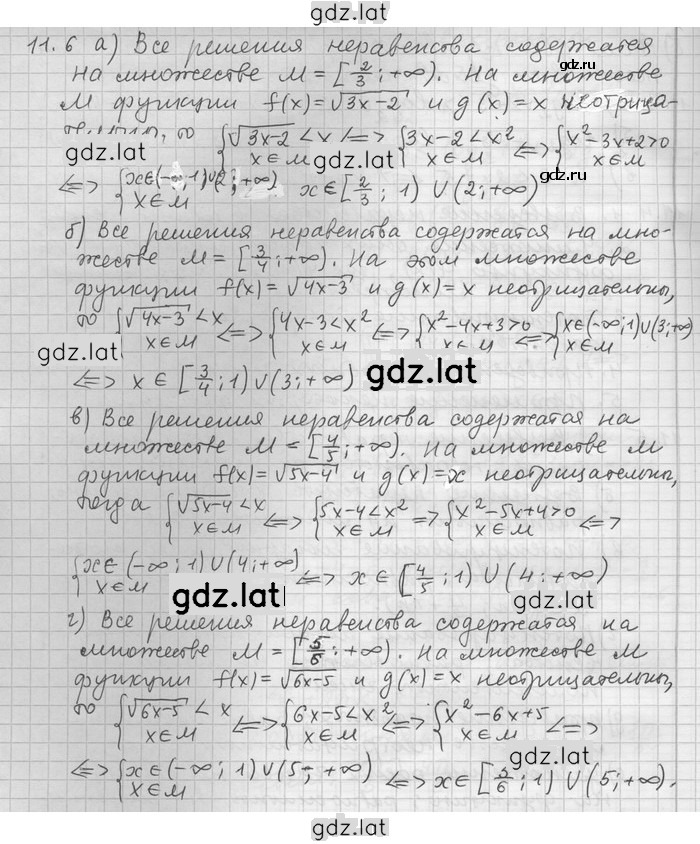 gdz.lat
11.6 а) Все решения неравенства содержатся
на множестве M = [2/3; +∞). На множестве
M функции f(x) = √3x-2 и g(x) = x неотрица-
то {√3x-2 < x <=> {3x-2 < x² <=> {x²-3x+2>0
x ∈ M x ∈ M x ∈ M
gdz.lat gdz.lat
<=> {x∈(-∞;1)∪(2;+∞) x∈[2/3; 1) ∪ (2;+∞)
x ∈ M
б) Все решения неравенства содержатся на мно-
жестве M = [3/4; +∞). На этом множестве
функции f(x) = √4x-3 и g(x) = x неотрицательны,
то {√4x-3 < x <=> {4x-3 < x² <=> {x²-4x+3>0 <=> {x∈(-∞;1)∪(3;+∞)
x ∈ M x ∈ M x ∈ M x ∈ M
gdz.lat
<=> x ∈ [3/4; 1) ∪ (3; +∞) gdz.lat
в) Все решения неравенства содержатся на
множестве M = [4/5; +∞). На множестве M
функции f(x) = √5x-4 и g(x) = x неотрицательны,
тогда {√5x-4 < x <=> {5x-4 < x² => {x²-5x+4>0 <=>
x ∈ M x ∈ M x ∈ M
{x∈ (-∞; 1) ∪ (4; +∞) <=> x ∈ [4/5; 1) ∪ (4; +∞)
x ∈ M
gdz.lat gdz.lat
г) Все решения неравенства содержатся на
множестве M = [5/6; +∞). На множестве M
функции f(x) = √6x-5 и g(x) = x неотрицательны,
то {√6x-5 < x <=> {6x-5 < x² <=> {x²-6x+5 <=>
x ∈ M x ∈ M x ∈ M
gdz.lat gdz.lat
<=> {x∈(-∞; 1) ∪ (5; +∞) <=> x∈[5/6; 1) ∪ (5; +∞).
x ∈ M
gdz.lat